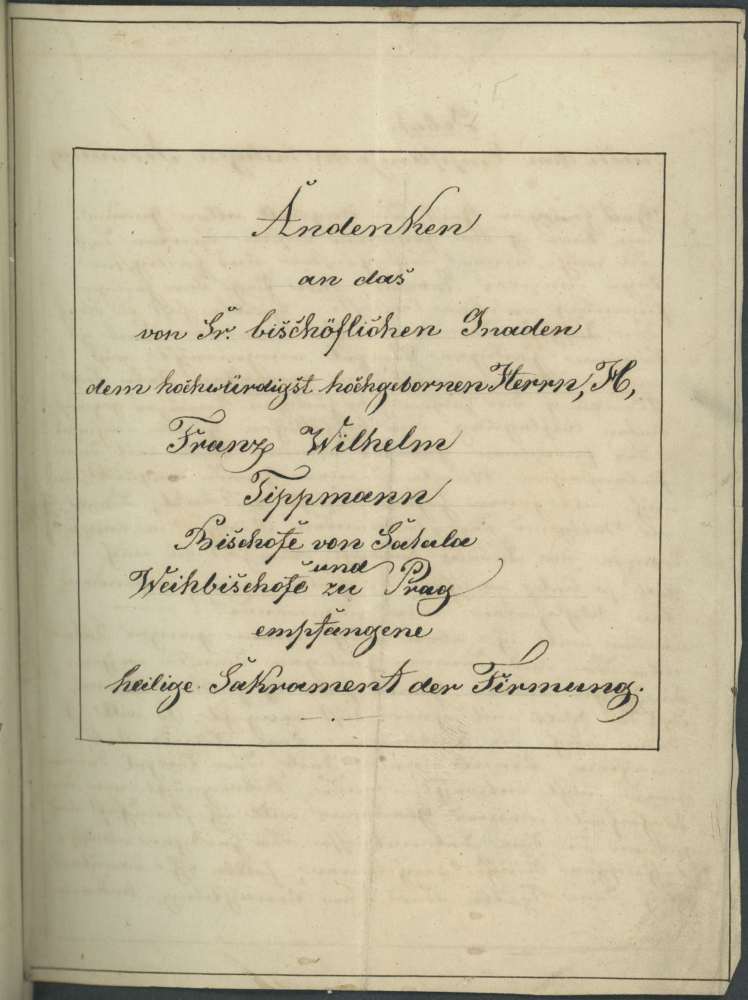 Andenken
an das
von Sr. bischöflichen Gnaden
dem hochwürdigst hochgebornen Herrn, H,
Franz Wilhelm
Tippmann
Bischofe von Satala
und
Weihbischofe zu Prag
empfangene
heilige Sakrament der Firmung.